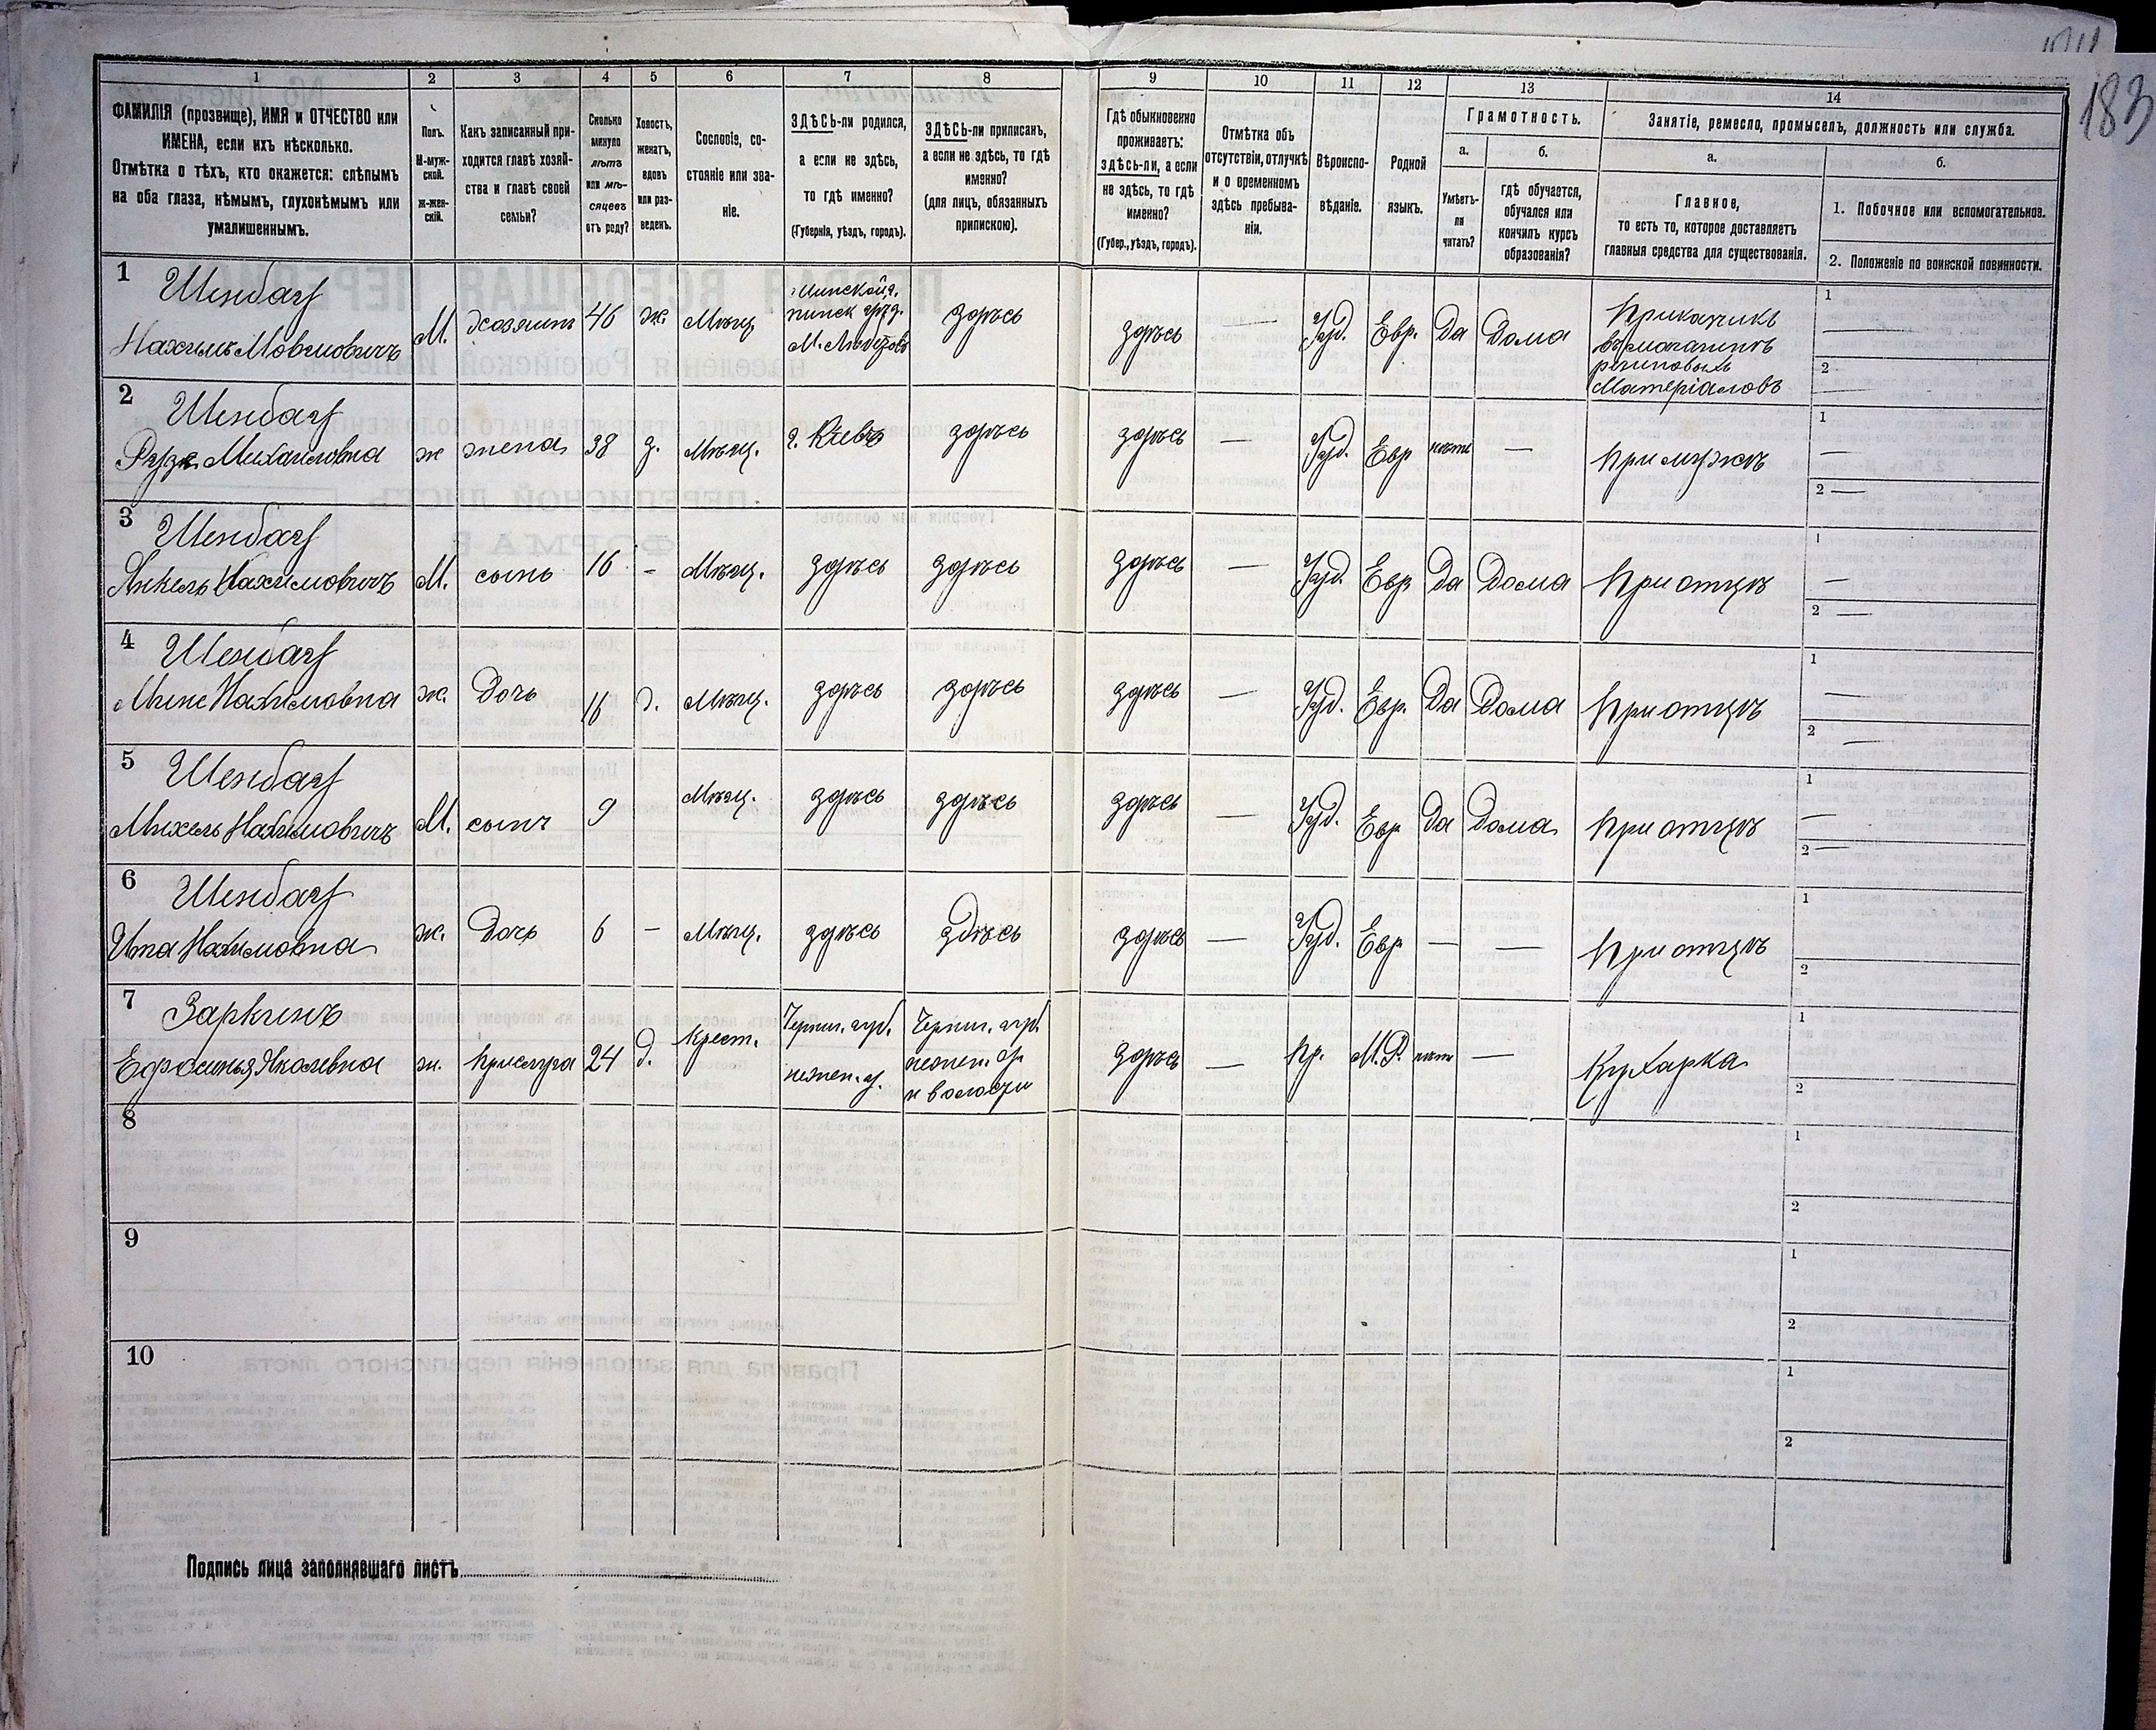 183
1 2 3 4 5 6 7 8 9 10 11 12 13 14
ФАМИЛІЯ (прозвище), ИМЯ и ОТЧЕСТВО или
ИМЕНА, если ихъ нѣсколько.
Отмѣтка о тѣхъ, кто окажется: слѣпымъ
на оба глаза, нѣмымъ, глухонѣмымъ или
умалишеннымъ.
Полъ.
М-муж-
ской.
Ж-жен-
скій.
Какъ записанный при-
ходится главѣ хозяй-
ства и главѣ своей
семьи?
Сколько
минуло
лѣтъ
или мѣ-
сяцевъ
отъ роду?
Холостъ,
женатъ,
вдовъ
или раз-
веденъ.
Сословіе, со-
стояніе или зва-
ніе.
ЗДѢСЬ-ли родился,
а если не здѣсь,
то гдѣ именно?
(Губернія, уѣздъ, городъ).
ЗДѢСЬ-ли приписанъ,
а если не здѣсь, то гдѣ
именно?
(для лицъ, обязанныхъ
припискою).
Гдѣ обыкновенно
проживаетъ:
здѣсь-ли, а если
не здѣсь, то гдѣ
именно?
(Губер., уѣздъ, городъ).
Отмѣтка объ
отсутствіи, отлучкѣ
и о временномъ
здѣсь пребыва-
ніи.
Вѣроиспо-
вѣданіе.
Родной
языкъ.
Грамотность.
а.
Умѣетъ-
ли
читать?
б.
гдѣ обучается,
обучался или
кончилъ курсъ
образованія?
Занятіе, ремесло, промыселъ, должность или служба.
а.
Главное,
то есть то, которое доставляетъ
главныя средства для существованія.
б.
1. Побочное или вспомогательное.
2. Положеніе по воинской повинности.
1
М. хозяинъ 46 ж. Мѣщ.
Минской г.
пинск уѣзд.
здѣсь
здѣсь — Іуд. Евр. Да Дома
Прикащикъ
въ магазинѣ
резиновыхъ
Матеріаловъ
1 —
2 —
2
Михайловна ж жена 38 з. Мѣщ. г. Кіевъ здѣсь здѣсь — Іуд. Евр нѣтъ — При мужѣ
1 —
2 —
3
Янкель Нахимовичъ М. сынъ 16 - Мѣщ. здѣсь здѣсь здѣсь — Іуд. Евр Да Дома При отцѣ
1 —
2 —
4
Нахимовна ж. Дочь д. Мѣщ. здѣсь здѣсь здѣсь — Іуд. Евр. Да Дома При отцѣ
1 —
2 —
5
Михель Нахимовичъ М. сынъ 9 Мѣщ. здѣсь здѣсь здѣсь — Іуд. Евр Да Дома При отцѣ
1 —
2 —
6
Ита Нахимовна ж. Дочь 6 — Мѣщ. здѣсь здѣсь здѣсь — Іуд. Евр — — При отцѣ
1
2
7 Заркинъ
Ефросинья Яковлевна ж. Прислуга 24 д. Крест.
Черниг. губ.
нежен. у.
Черниг. губ.
нежен. у.
и волости
здѣсь — Пр. М.Р. нѣтъ — Кухарка
1
2
8
1
2
9
1
2
10
1
2
Подпись лица заполнявшаго листъ